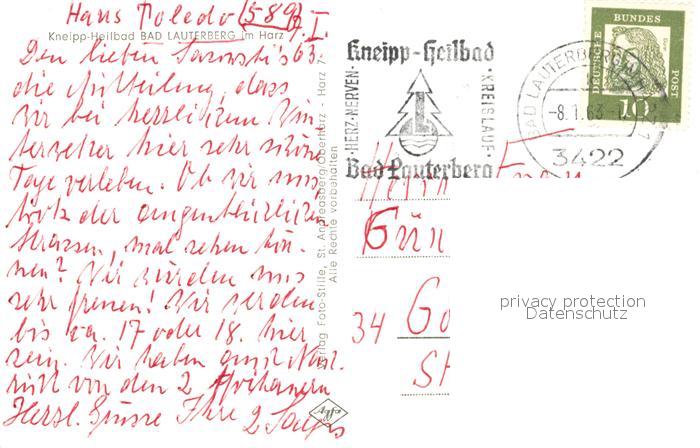 Haus Toledo (589) 7. I.
Kneipp-Heilbad BAD LAUTERBERG im Harz
63.
Den lieben
die Mitteilung, dass
wir bei herrlichem Win
terwetter hier sehr schöne
Tage verleben. Ob wir uns
trotz der augenblicklichen
Strassen, mal sehen kön-
nen? Wir würden uns
sehr freuen! Wir werden
bis ca. 17 oder 18. hier
sein. Wir haben gute Nach.
richt von den 2 Afrikanern
Herzl. Grüsse Ihre 2
Verlag Foto-Stille, St. Andreasberg/Oberharz - Harz 7
Alle Rechte vorbehalten
Agfa
Kneipp-Heilbad
·HERZ·NERVEN·
·KREISLAUF·
Bad Lauterberg
DEUTSCHE BUNDES POST
10
BAD LAUTERBERG
-8.1.63
3422
Herrn
Gün
34 Go
St
privacy protection
Datenschutz